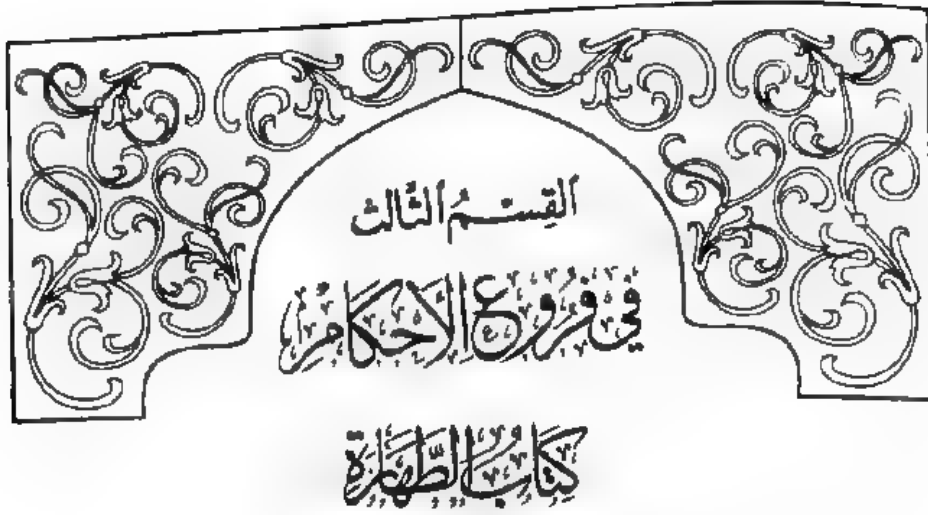 القِسْمُ الثَّالث
فِي فُرُوعِ الأَحْكَامِ
كِتَابُ الطَّهَارَةِ